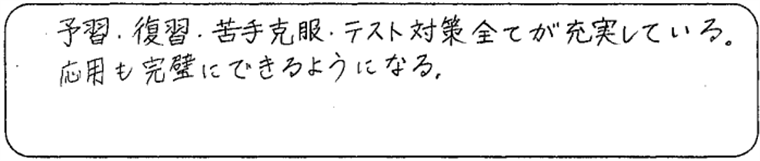 予習・復習・苦手克服・テスト対策全てが充実している。
応用も完璧にできるようになる。